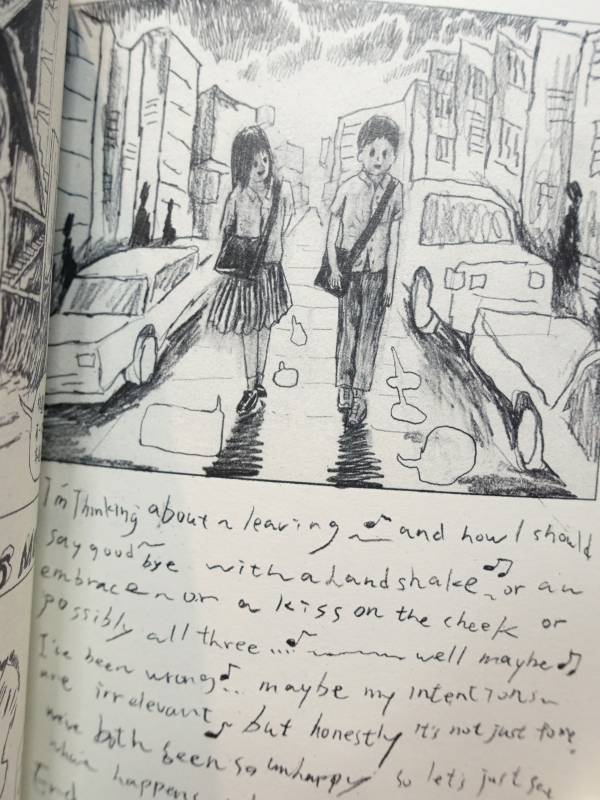 I'm Thinking about ~ leaving ~ ♪ and how I should
say good~bye with a handshake ♫ or an
embrace ~ or a kiss on the cheek or
possibly all three ....♪~ well maybe ♫
I've been wrong ♪.. maybe my intentions ~
are irrelevant ♪ but honestly it's not just for
we've both been so unhappy so let's just see
happens
End